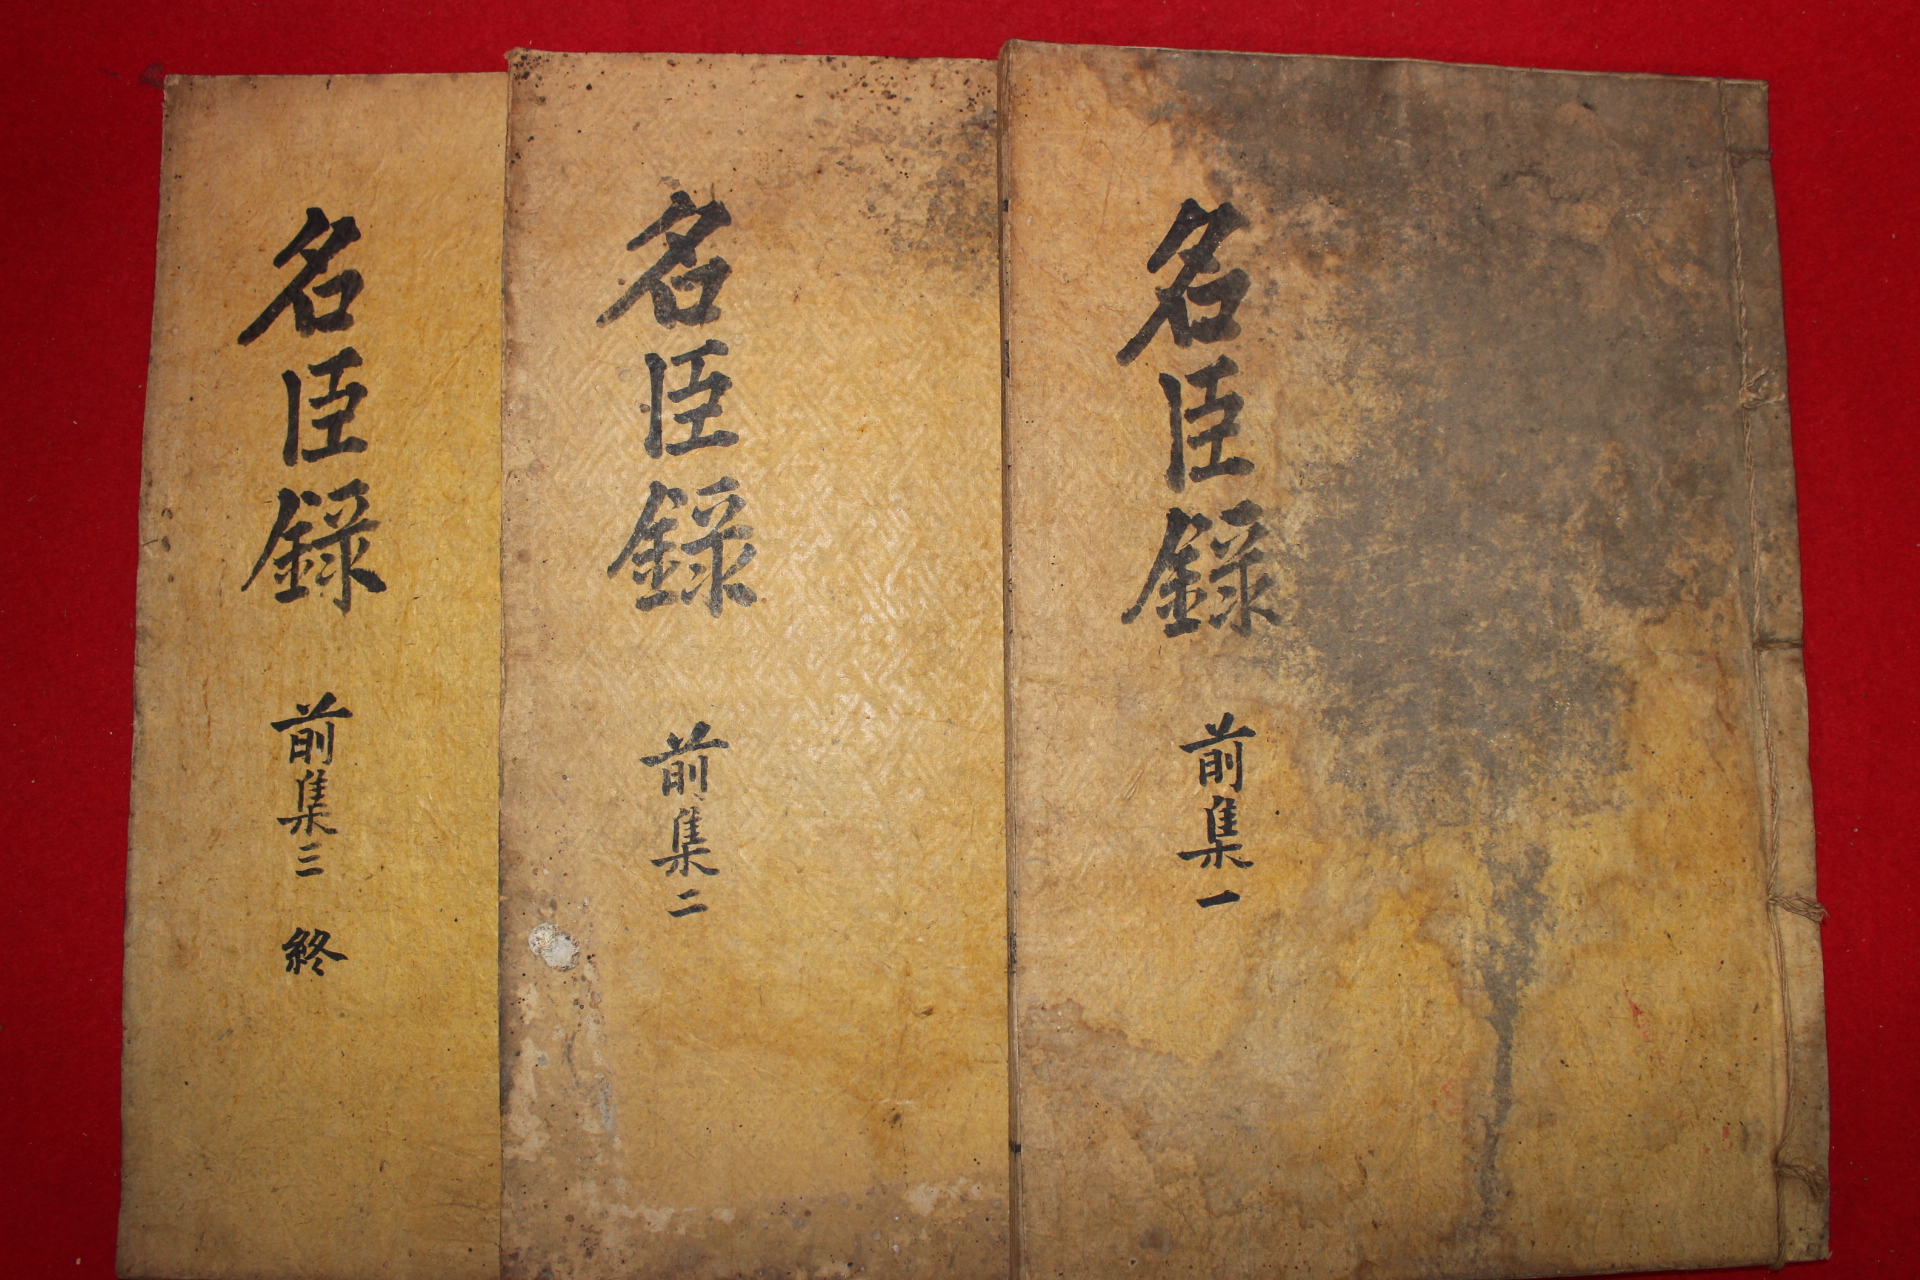 名臣錄 前集一
名臣錄 前集二
名臣錄 前集三 終